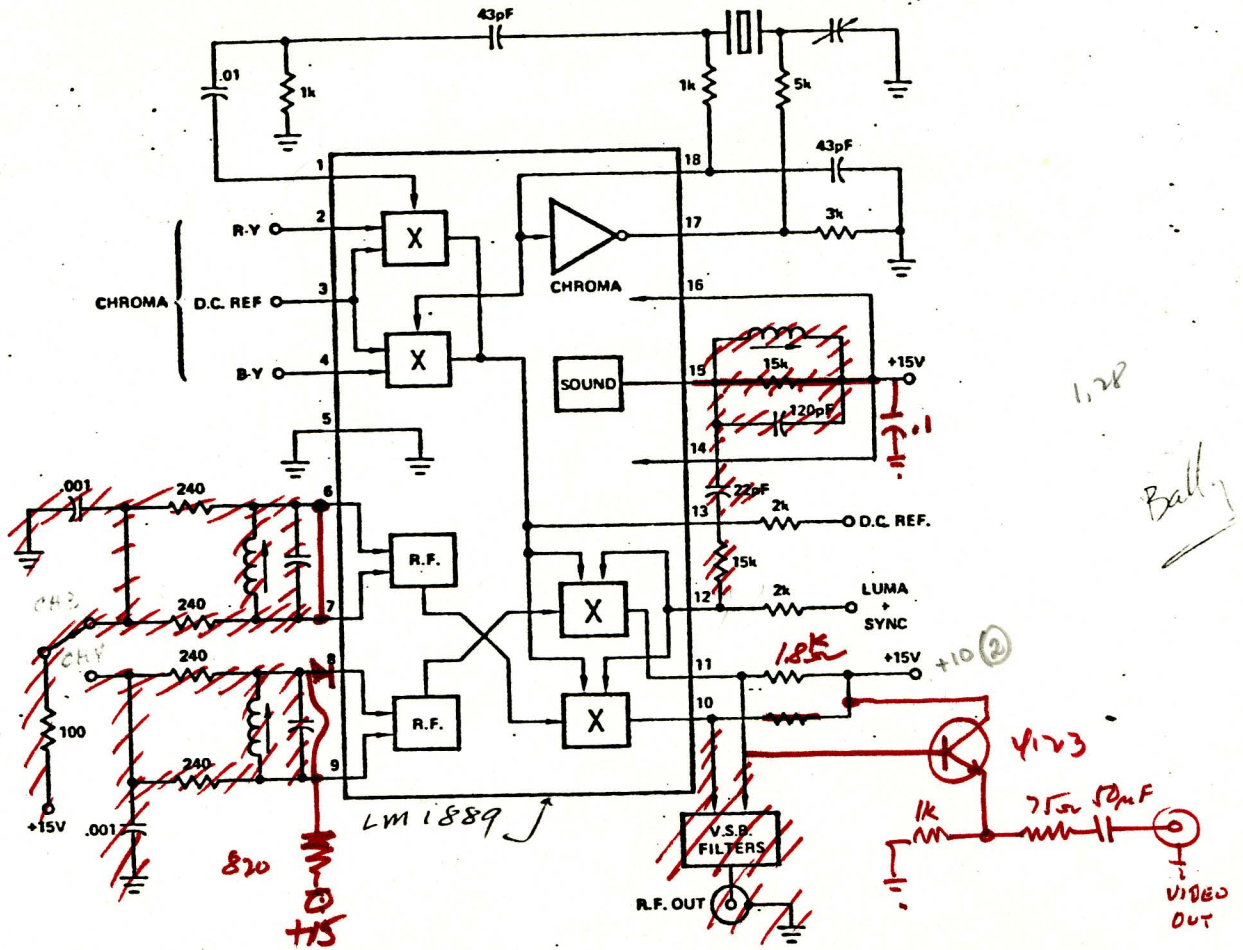 43pF
.01
1k
1k
5k
43pF
1
18
R-Y
2
X
17
3k
CHROMA
D.C. REF
3
CHROMA
16
B-Y
4
X
SOUND
15
15k
+15V
120pF
.1
5
14
1,28
Bally
.001
240
6
22pF
13
2k
D.C. REF.
R.F.
15k
X
CH3
240
7
12
2k
LUMA
+
SYNC
CH4
240
8
11
1.8K
+15V
+10 2
100
R.F.
X
10
4123
240
9
+15V
.001
LM 1889
820
+15
V.S.B.
FILTERS
1k
75Ω
50μF
R.F. OUT
VIDEO
OUT